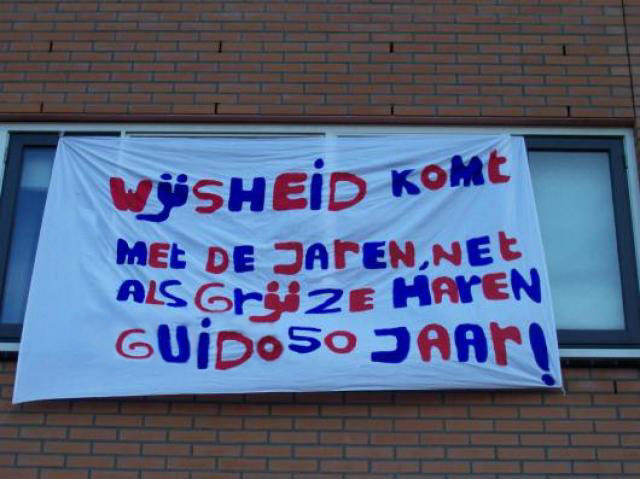 WijSHEiD KOMt
MEt DE JArEN, NEt
ALS GrijZE HArEN
GUiDo 50 JAAr!